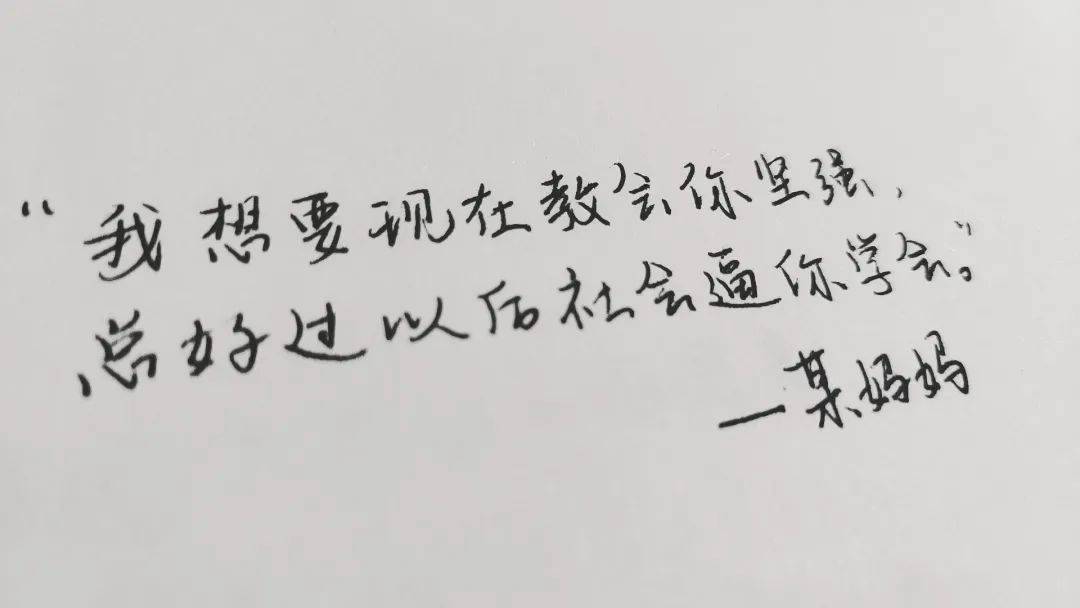 “我想要现在教会你坚强,
总好过以后社会逼你学会。”
—某妈妈